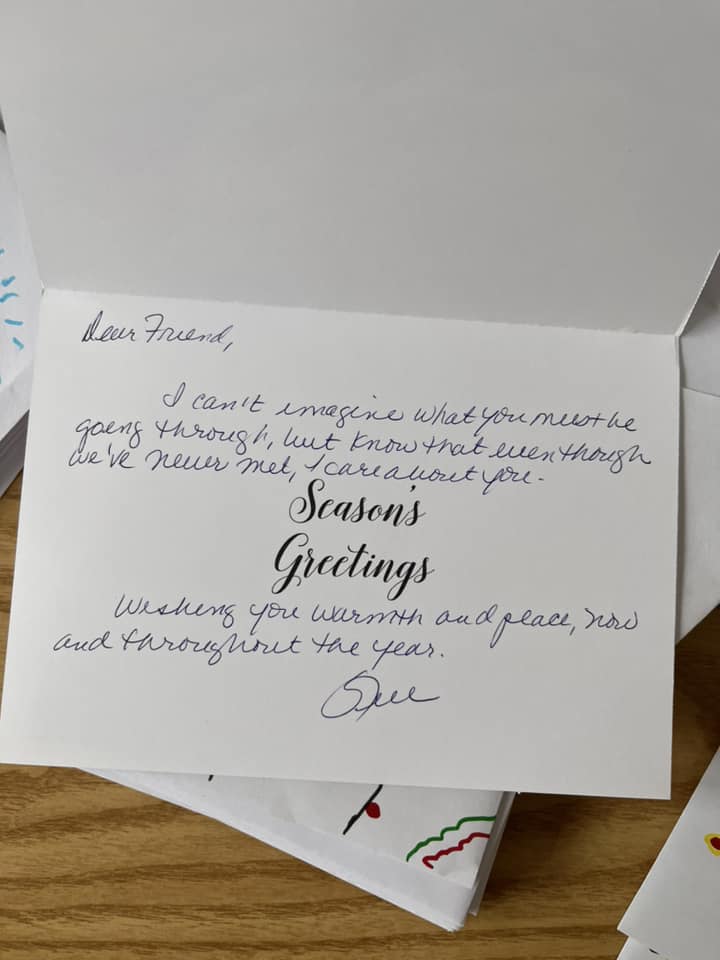 Dear Friend,
I can't imagine what you must be
going through, but know that even though
we've never met, I care about you.
Season's
Greetings
Wishing you warmth and peace, now
and throughout the year.